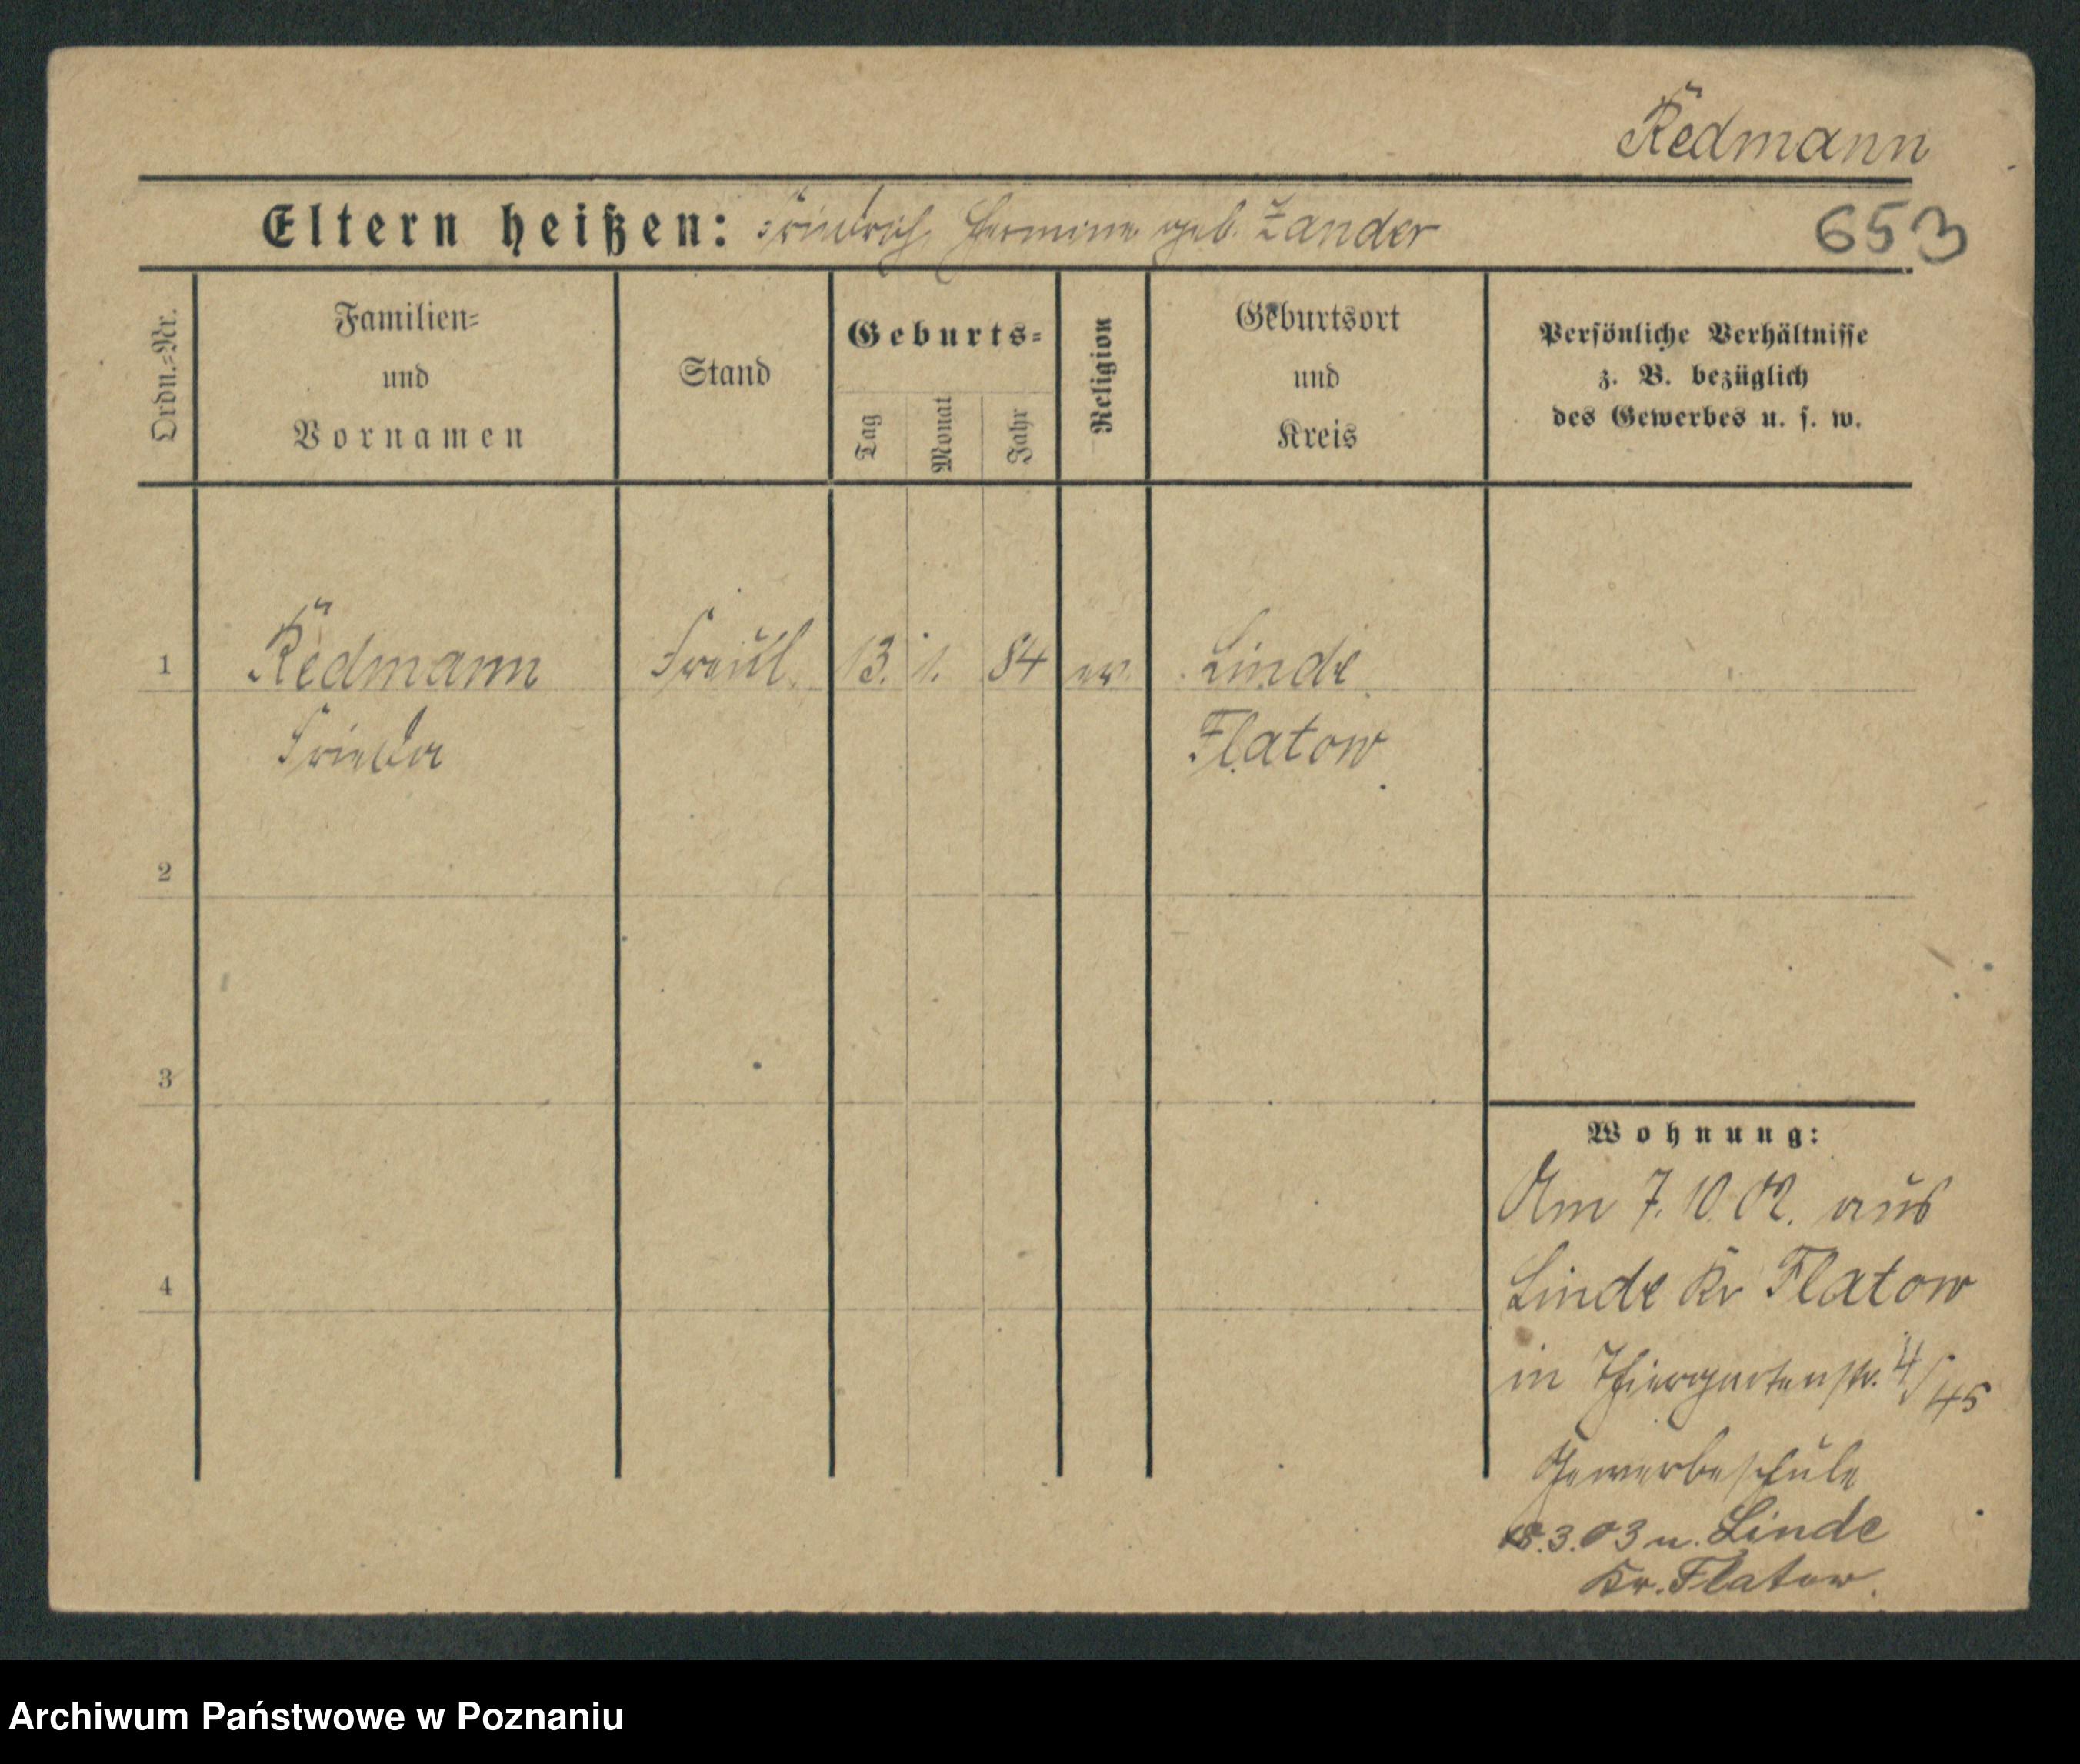 Redmann
653
Eltern heißen: Friedrich, Hermine geb. Zander
Ordn.=Nr.
Familien=
und
Vornamen
Stand
Geburts=
Tag
Monat
Jahr
Religion
Geburtsort
und
Kreis
Persönliche Verhältnisse
z. B. bezüglich
des Gewerbes u. s. w.
1 Redmann Fräul. 13. 1. 84 ev. Linde
Frieda Flatow
2
3
4
Wohnung:
Am 7.10.02. aus
Linde Kr Flatow
in Thiergartenstr. 4/45
Gewerbeschule
3.03 n. Linde
Kr. Flatow.
Archiwum Państwowe w Poznaniu